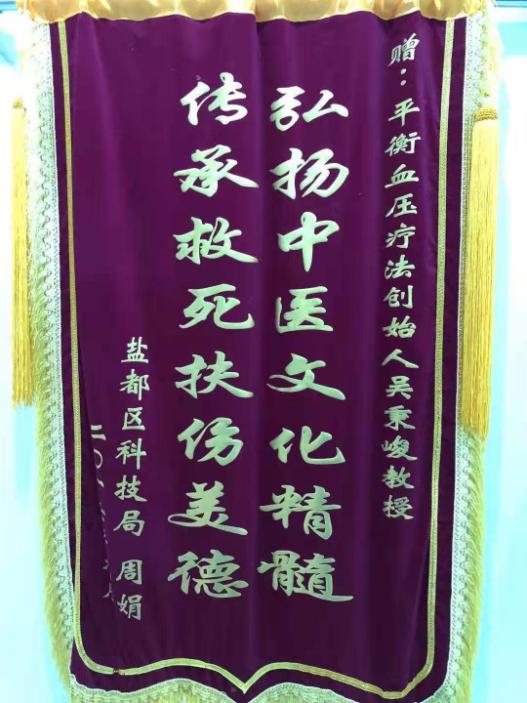 赠：平衡血压疗法创始人吴秉峻教授
弘扬中医文化精髓
传承救死扶伤美德
盐都区科技局 周娟
二〇一